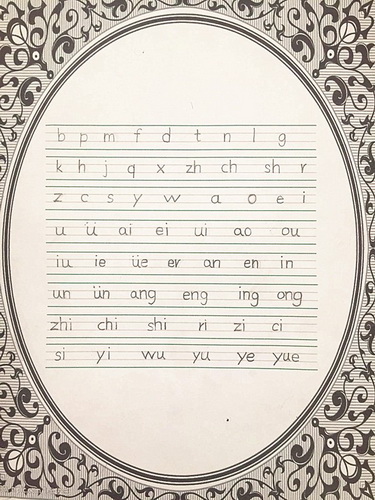 b p m f d t n l g
k h j q x zh ch sh r
z c s y w a o e i
u ü ai ei ui ao ou
iu ie üe er an en in
un ün ang eng ing ong
zhi chi shi ri zi ci
si yi wu yu ye yue